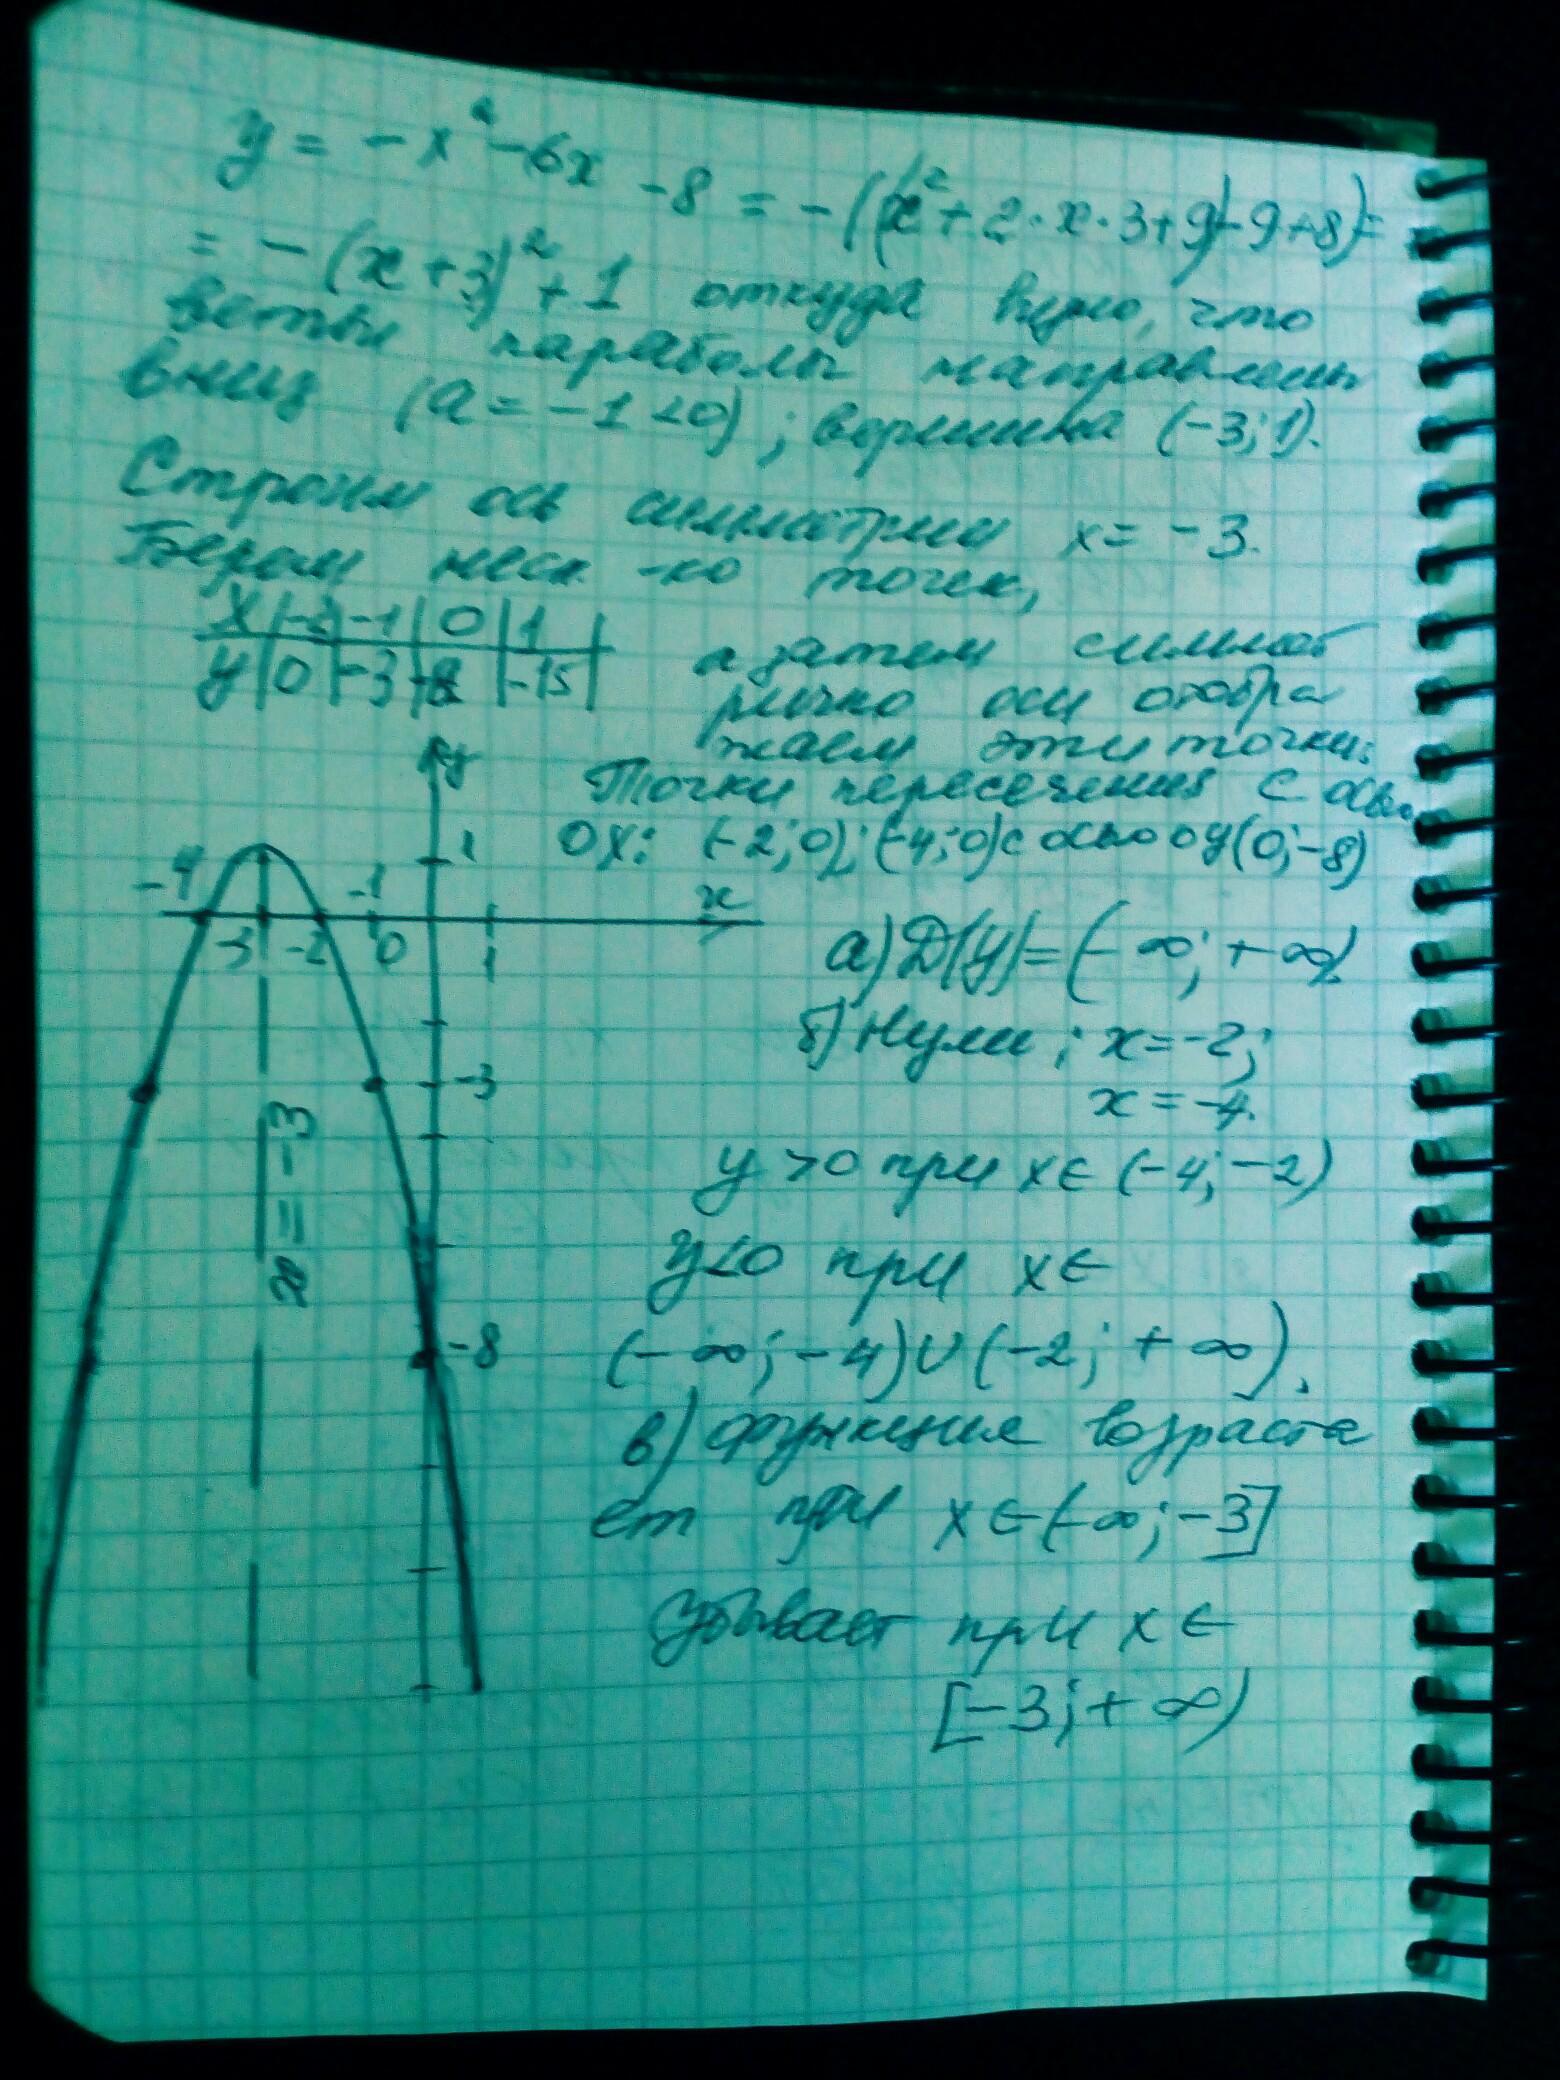 y = -x² - 6x - 8 = -((x² + 2·x·3+9)-9+8)=
= -(x+3)² + 1 откуда видно, что
ветви параболы направлены
вниз (a = -1 <0); вершина (-3; 1).
Строим ось симметрии x = -3.
Берем неск-ко точек,
x | -2 | -1 | 0 | 1 |
y | 0 | -3 | -8 | -15 |
а затем симмет
рично оси отобра
жаем эти точки.
Точки пересечения с осью
ОХ: (-2; 0); (-4; 0) с осью оу (0; -8)
y
1
-4 -1 x
-3 -2 0 1
-3
x = -3
-8
а) D(y) = (-∞; +∞)
б) Нули; x = -2;
x = -4.
y > 0 при x ∈ (-4; -2)
y < 0 при x ∈
(-∞; -4) ∪ (-2; +∞).
в) функция возраста
ет при x ∈ (-∞; -3]
убывает при x ∈
[-3; +∞)